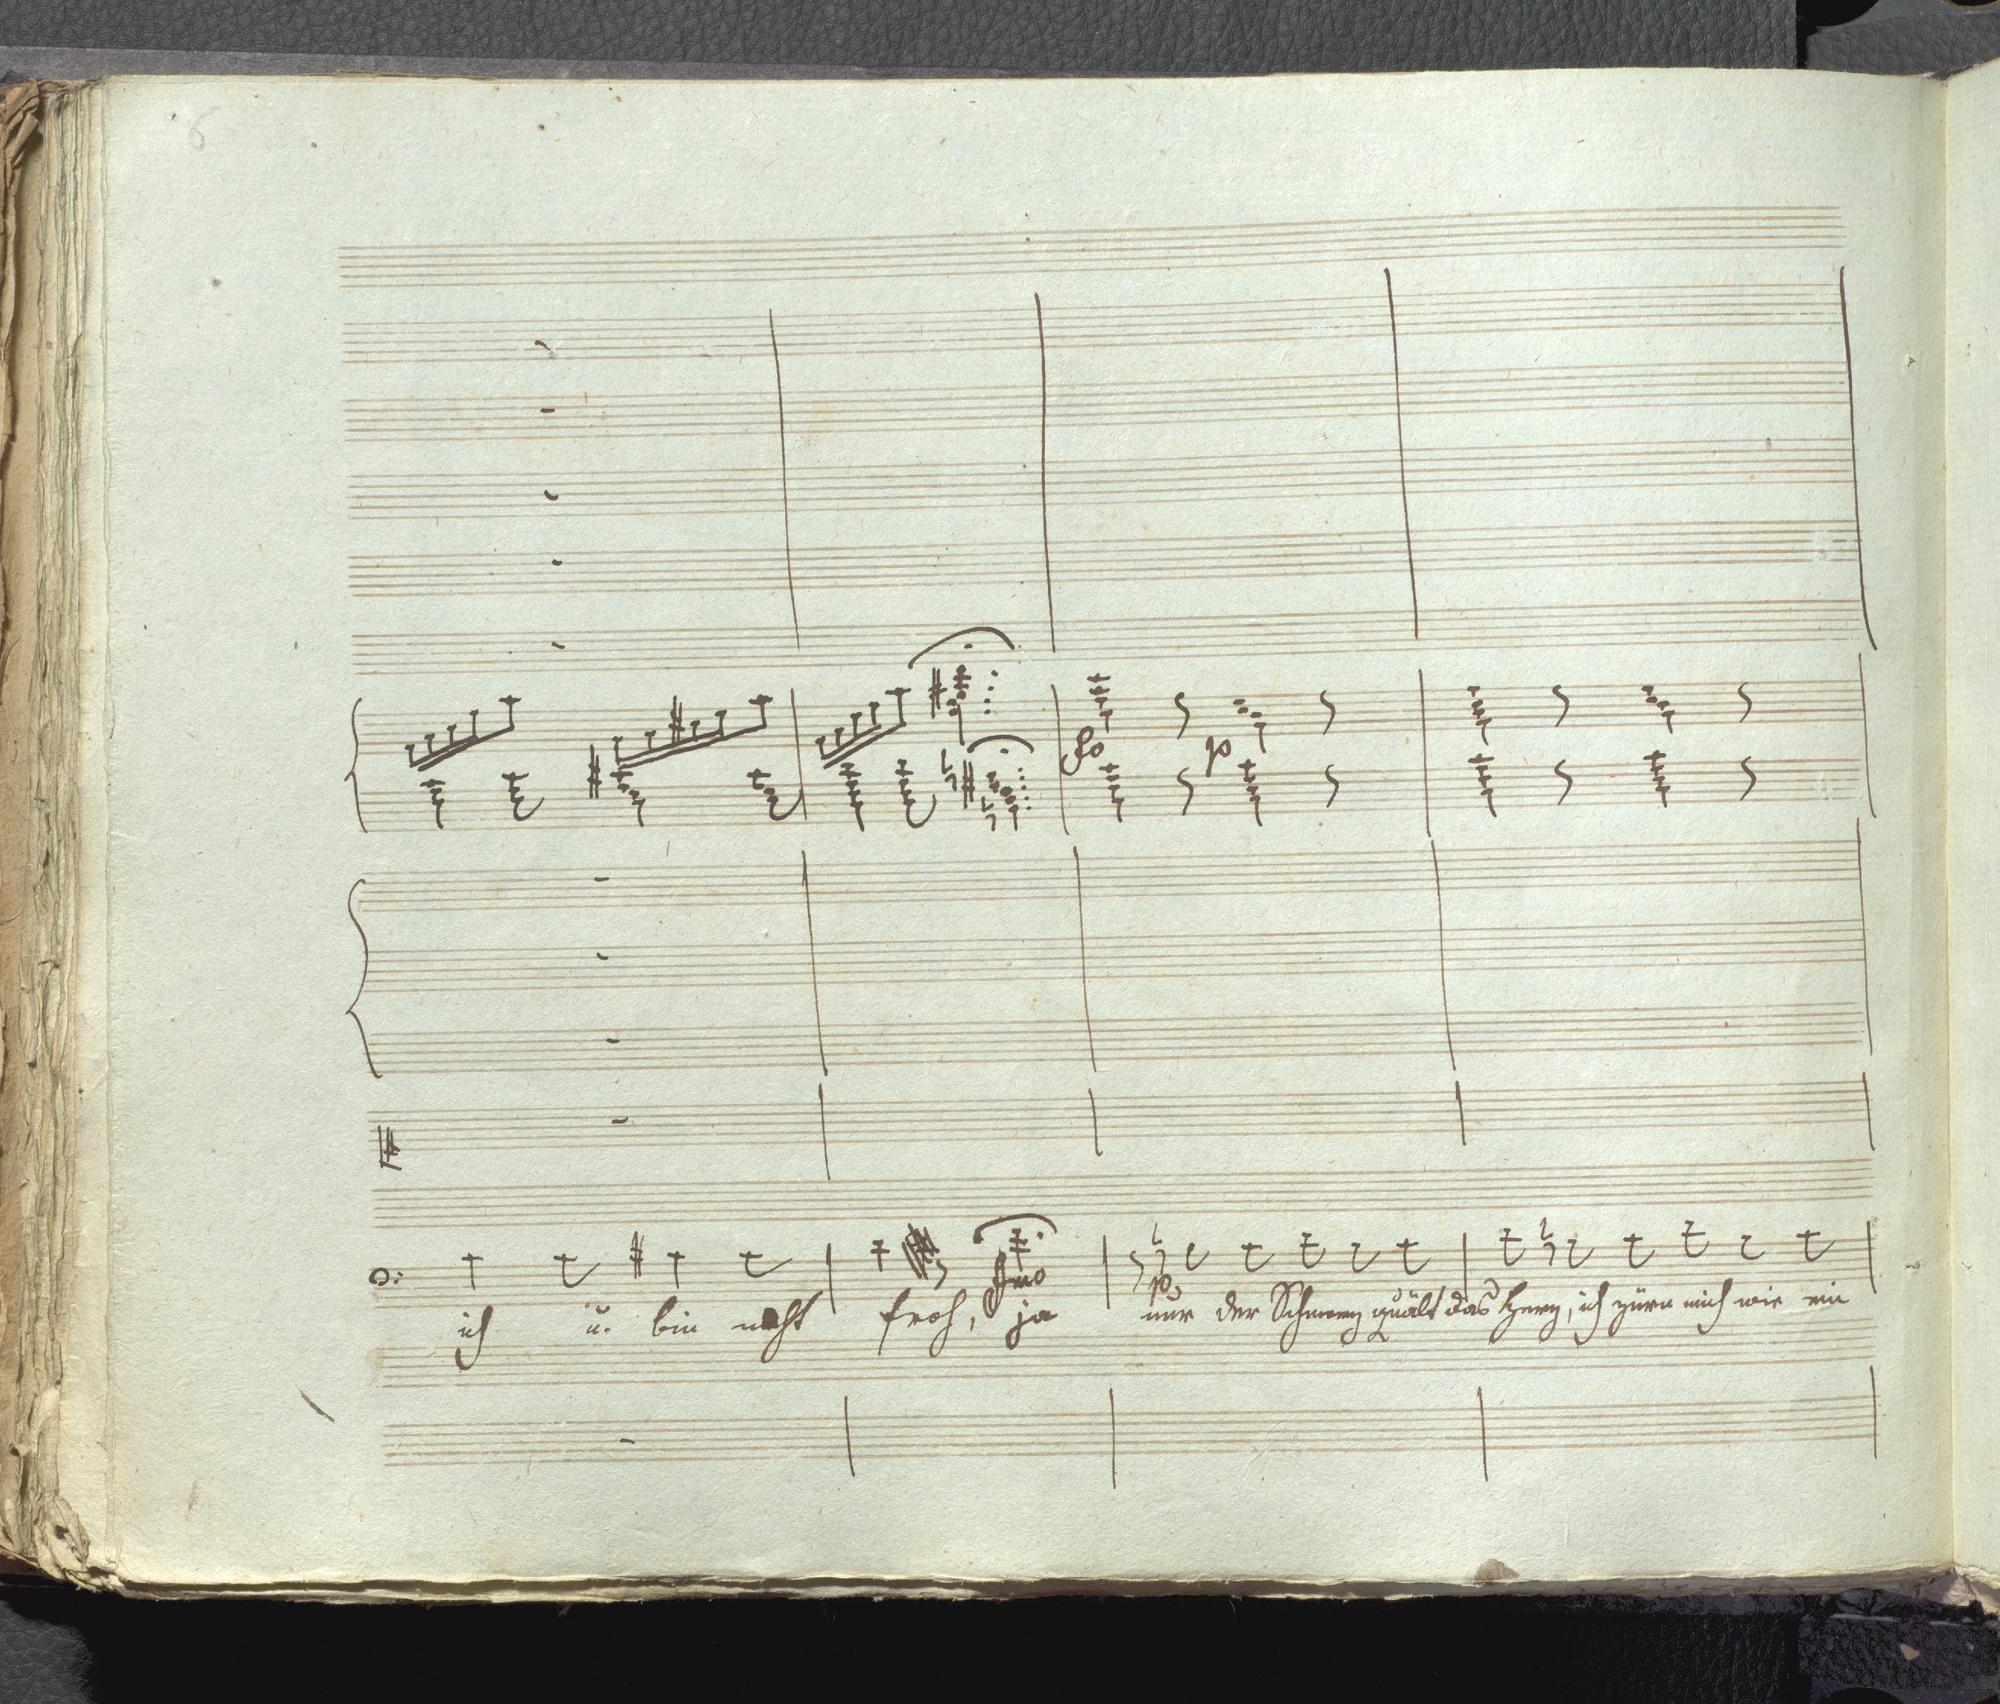 6
fo p
fmo
p
ich u. bin nicht froh, ja nur der Schmerz quält das Herz, ich zürn mich wie ein